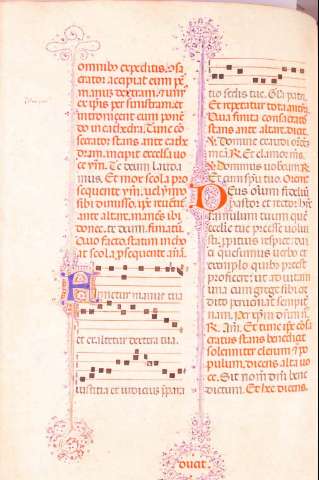 omnibꝰ expeditis. ꝯſe
crator accipiat eum ꝑ
manus dextram. ⁊ unꝰ
ex ipis per siniſtram. et
introniçent eum ponē
do in cathedra. Tunc cō
secrator stans ante cathe
dram. incipit excelsa uo
ce ym̄. Te deum lauda
mus. Et mox scola pro
sequente ym̄.
bi dimisso. ipe
ante altare. manēs ibi
donec. te deum. finiatur̄.
Quo facto. statim incho
at scola. ꝓsequente añam.
Firmetur manus tua
et exaltetur dextera tua.
iustitia et iudicius p̄para
tio sedis tue. Gla patri.
Et repetatur tota antiph̄.
Qua finita consecrator
stans ante altare. dicit.
℣. Domine exaudi oꝛōnes
meā. ℟. Et clamor m̄s.
℣. Dominus uobiscum. ℟.
Et cum spū tuo. Oremus
Deus om̄ium fidelium
pastor et rector hūc
famulum tuum quē
ecclie tue preesse uolui
sti. ꝓpitius respice. da ei
qs̄ uerbo et
exemplo quibꝰ preest
proficere. ut ad uitam
una cum grege sibi cre
dito perueniat sempiter
nam. Per xp̄m dn̄m nr̄m.
℟. Am̄. Et tunc ipe cōse
cratus stans benedicit
solenniter clerum ⁊ po
pulum. dicens alta uo
ce. Sit nom̄ dn̄i bene
dictum. Et hec dicens.
ducat.